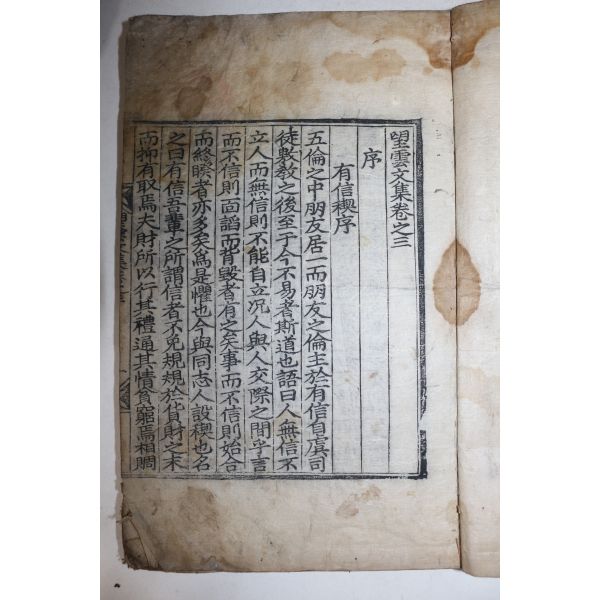 望雲文集卷之三
序
有信稧序
五倫之中朋友居一而朋友之倫主於有信自虞司
徒敷教之後至于今不易者斯道也語曰人無信不
立人而無信則不能自立況人與人交際之間乎言
而不信則面諂而背毀者有之矣事而不信則始合
而終睽者亦多矣爲是懼也今與同志人設稧也名
之曰有信吾輩之所謂信者不免規規於貨財之末
而抑有取焉夫財所以行其禮通其情貧窮焉相賙